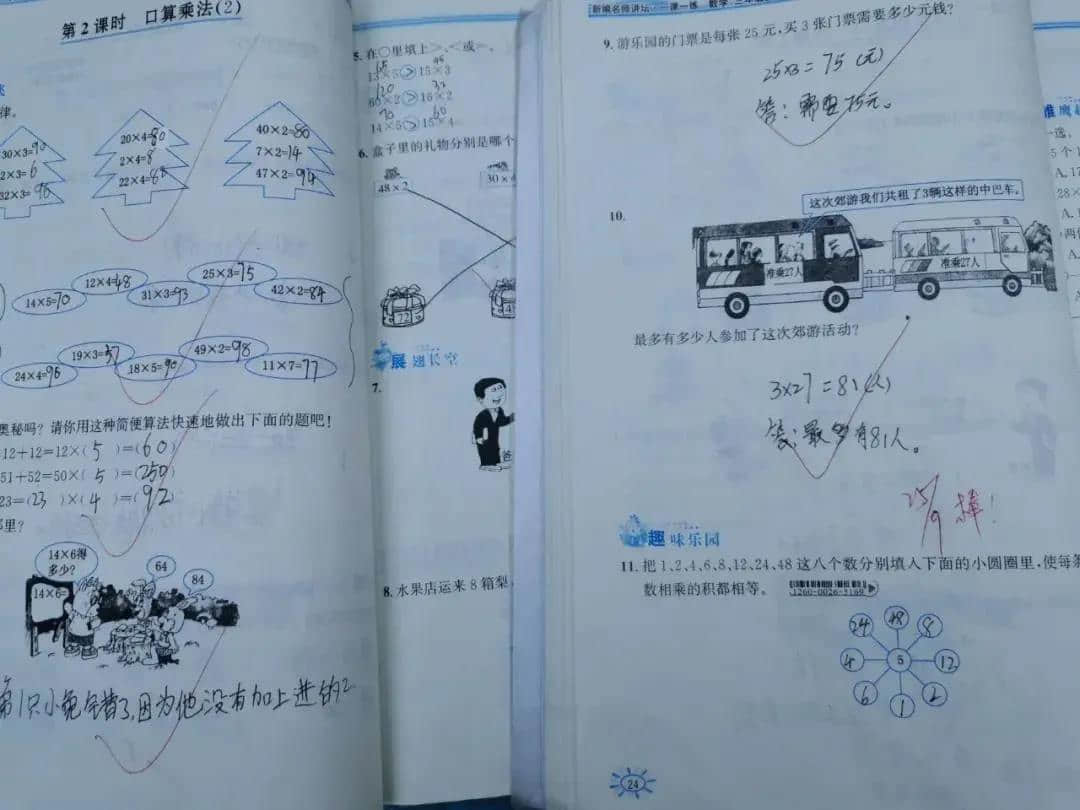 第2课时 口算乘法(2)
律。
30×3=90
2×3=6
32×3=96
20×4=80
2×4=8
22×4=88
40×2=80
7×2=14
47×2=94
14×5=70
12×4=48
31×3=93
25×3=75
42×2=84
24×4=96
19×3=57
18×5=90
49×2=98
11×7=77
奥秘吗？请你用这种简便算法快速地做出下面的题吧！
12+12=12×(5)=(60)
51+52=50×(5)=(250)
23=(23)×(4)=(92)
哪里？
14×6得
多少？
14×6=
64
84
第1只小兔算错了,因为他没有加上进的2
5. 在○里填上>、<或=。
65 45
13×5>15×3
120 32
60×2>16×2
70 60
14×5>15×4
6. 盒子里的礼物分别是哪个
48×2
30×
72
展翅长空
7.
爸
8. 水果店运来8箱梨,
新编名师讲坛·一课一练 数学
9. 游乐园的门票是每张25元,买3张门票需要多少元钱？
25×3=75(元)
答:需要75元。
10.
这次郊游我们共租了3辆这样的中巴车。
准乘27人
准乘27人
最多有多少人参加了这次郊游活动？
3×27=81(人)
答:最多有81人。
25/9 棒!
趣味乐园
11. 把1,2,4,6,8,12,24,48这八个数分别填入下面的小圆圈里,使每条
数相乘的积都相等。
24
48
8
4
5
12
6
1
2
24
一选,
5个1
A. 17
28×
A. 1
两位